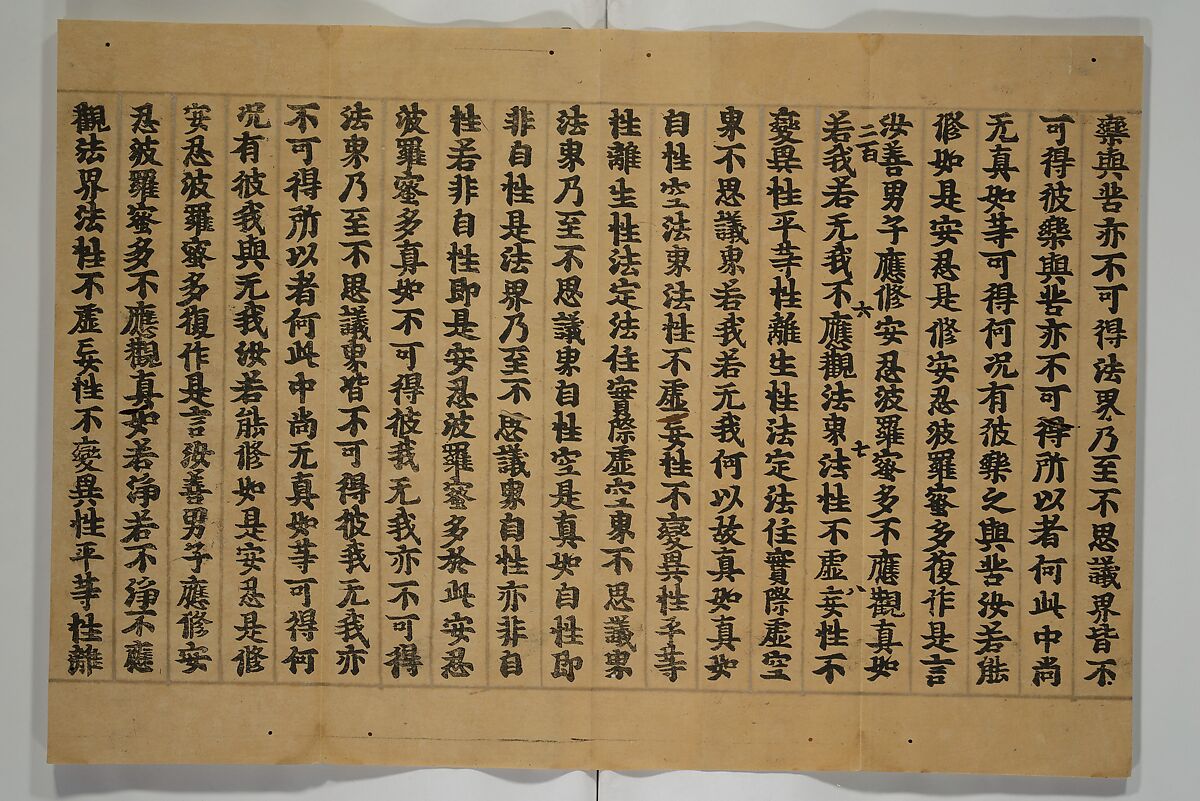 樂與苦亦不可得法界乃至不思議界皆不
可得彼樂與苦亦不可得所以者何此中尚
无真如等可得何况有彼樂之與苦汝若能
修如是安忍是修安忍波羅蜜多復作是言
汝善男子應修安忍波羅蜜多不應觀真如
二百 六 七 八
若我若无我不應觀法界法性不虛妄性不
變異性平等性離生性法定法住實際虛空
界不思議界若我若无我何以故真如真如
自性空法界法性不虛妄性不變異性平等
性離生性法定法住實際虛空界不思議界
法界乃至不思議界自性空是真如自性即
非自性是法界乃至不思議界自性亦非自
性若非自性即是安忍波羅蜜多於此安忍
波羅蜜多真如不可得彼我无我亦不可得
法界乃至不思議界皆不可得彼我无我亦
不可得所以者何此中尚无真如等可得何
况有彼我與无我汝若能修如是安忍是修
安忍波羅蜜多復作是言汝善男子應修安
忍波羅蜜多不應觀真如若淨若不淨不應
觀法界法性不虛妄性不變異性平等性離